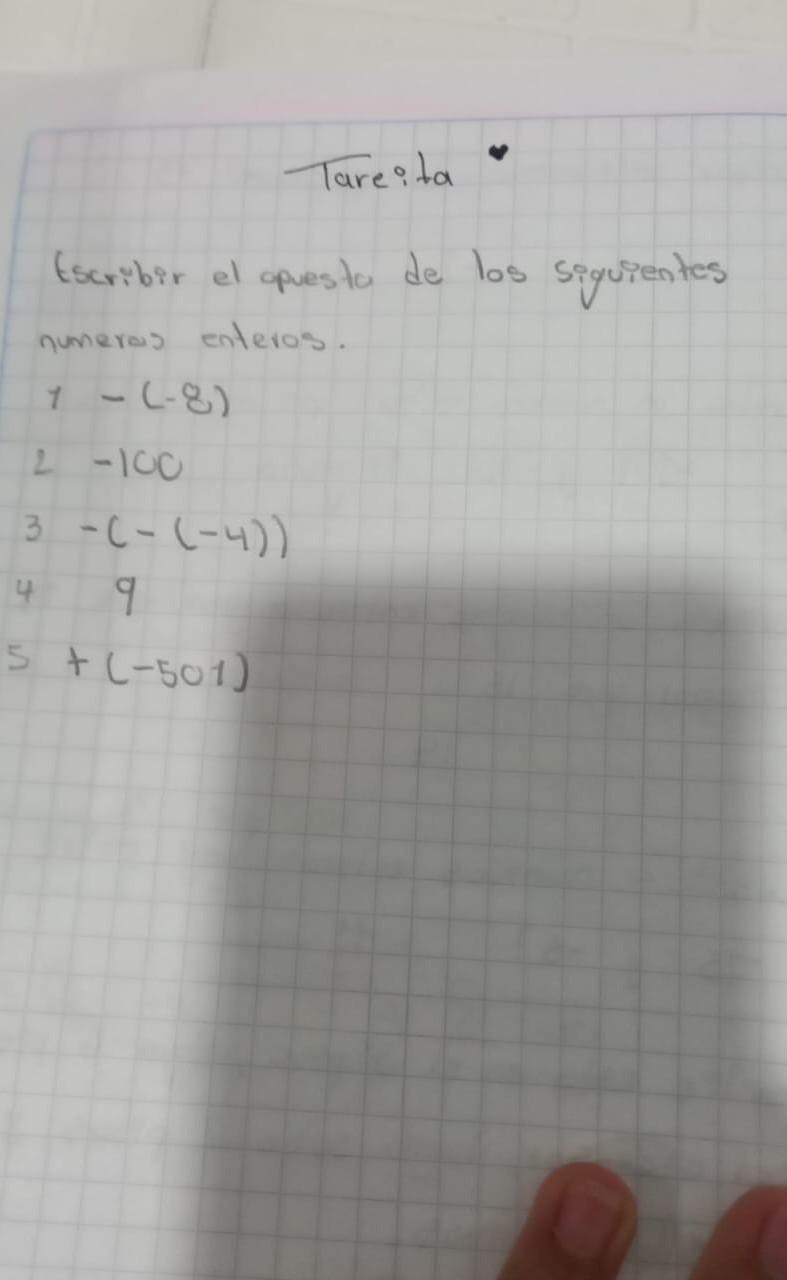 Tareita ♥
Escribir el opuesto de los siguientes
numeros enteros.
1 -(-8)
2 -100
3 -(-(-4))
4 9
5 +(-501)